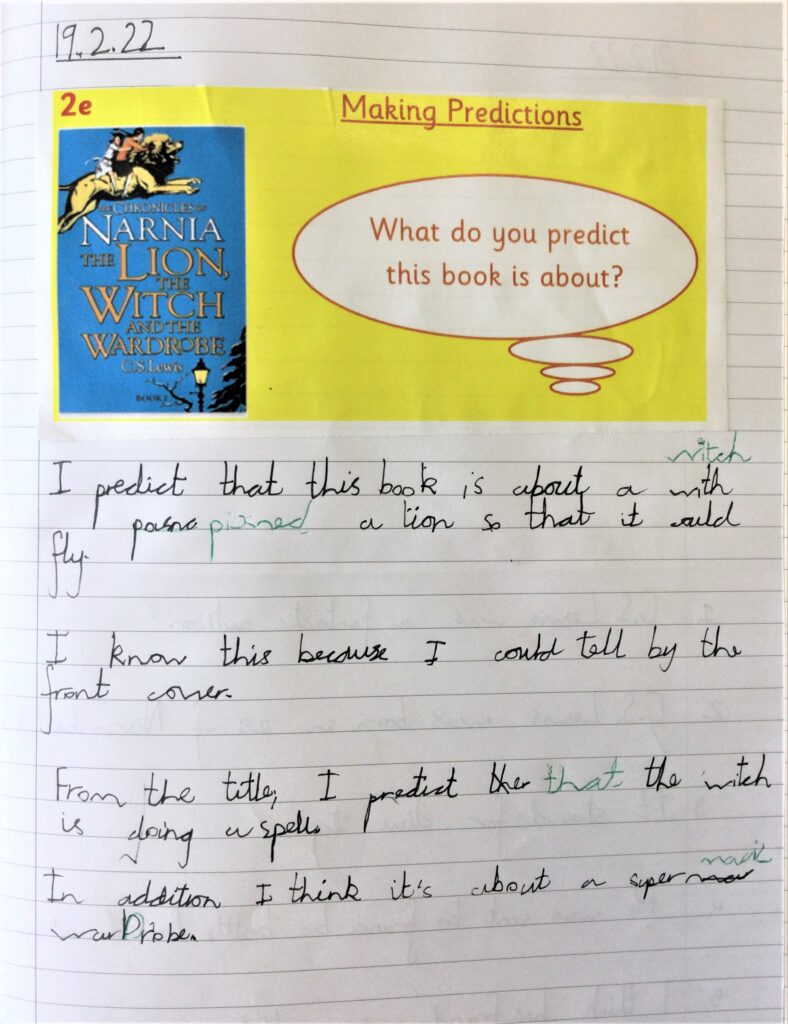 19.2.22
2e
Making Predictions
THE CHRONICLES OF
NARNIA
THE LION,
THE
WITCH
AND THE
WARDROBE
C.S. LEWIS
BOOK 2
What do you predict
this book is about?
witch
I predict that this book is about a with
a lion so that it could
fly.
I know this because I could tell by the
front cover.
From the title, I predict ther that the witch
is doing a spell.
In addition I think it's about a super
warDrobe.